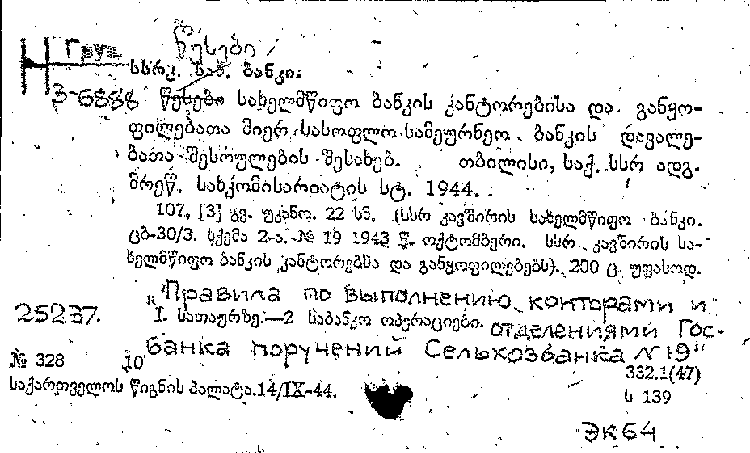 წესები
Н Груз.
სსრკ. სახ. ბანკი.
З-6888 წესები სახელმწიფო ბანკის კანტორებისა და განყო-
ფილებათა მიერ სასოფლო-სამეურნეო ბანკის დავალე-
ბათა შესრულების შესახებ. თბილისი, საქ. სსრ ადგ.
მრეწ. სახკომისარიატის სტ. 1944.
107, [3] გვ. უკანო. 22 სმ. (სსრ კავშირის სახელმწიფო ბანკი.
ცბ-30/3. სქემა 2-ა. № 19 1943 წ. ოქტომბერი. სსრ კავშირის სა-
ხელმწიფო ბანკის კანტორებსა და განყოფილებებს). 200 ც. უფასოდ.
„Правила по выполнению конторами и
25237. I. სათაურზე:—2 საბანკო ოპერაციები. отделениями Гос-
банка поручений Сельхозбанка №19"
№ 328 10 332.1(47)
საქართველოს წიგნის პალატა. 14/IX-44. წ 139
ЭК64